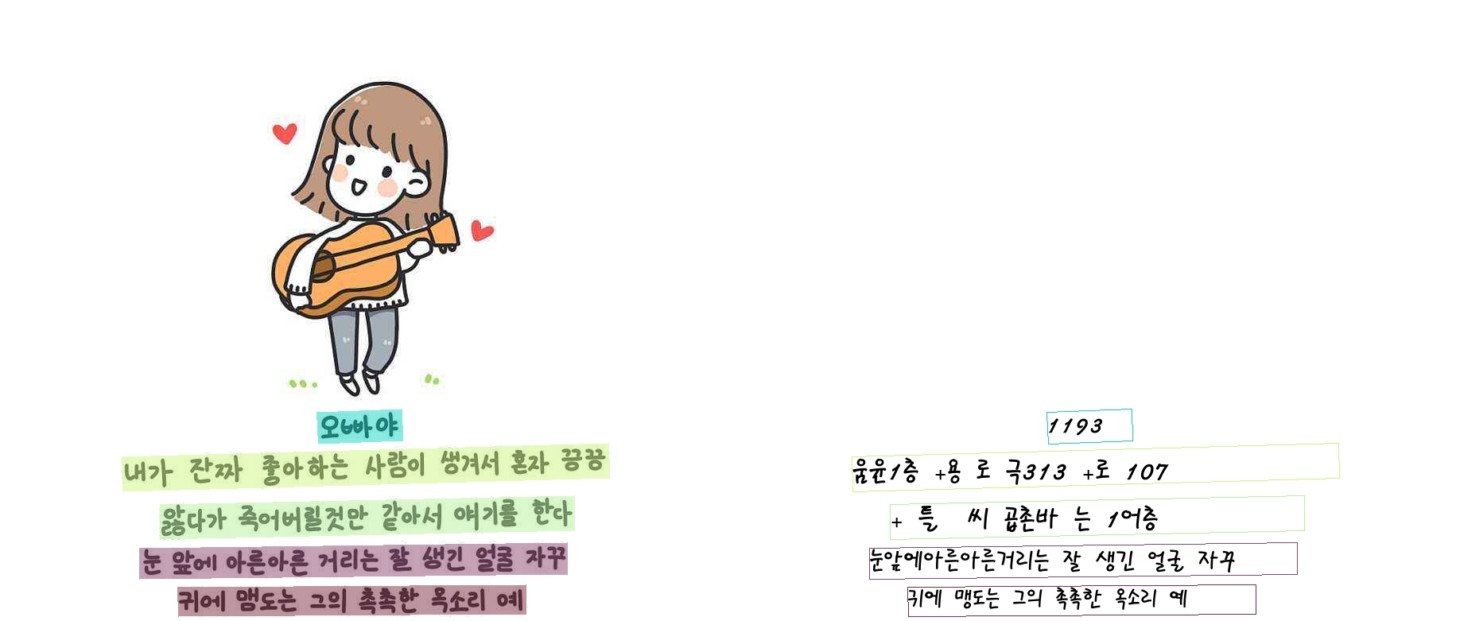 오빠야
내가 잔짜 좋아하는 사람이 생겨서 혼자 끙끙
앓다가 죽어버릴것만 같아서 얘기를 한다
눈 앞에 아른아른 거리는 잘 생긴 얼굴 자꾸
귀에 맴도는 그의 촉촉한 목소리 예
1193
움윤1층 +용 로 극313 +로 107
+ 틀 씨 곱촌바 는 1어층
눈앞에아른아른거리는 잘 생긴 얼굴 자꾸
귀에 맴도는 그의 촉촉한 목소리 예